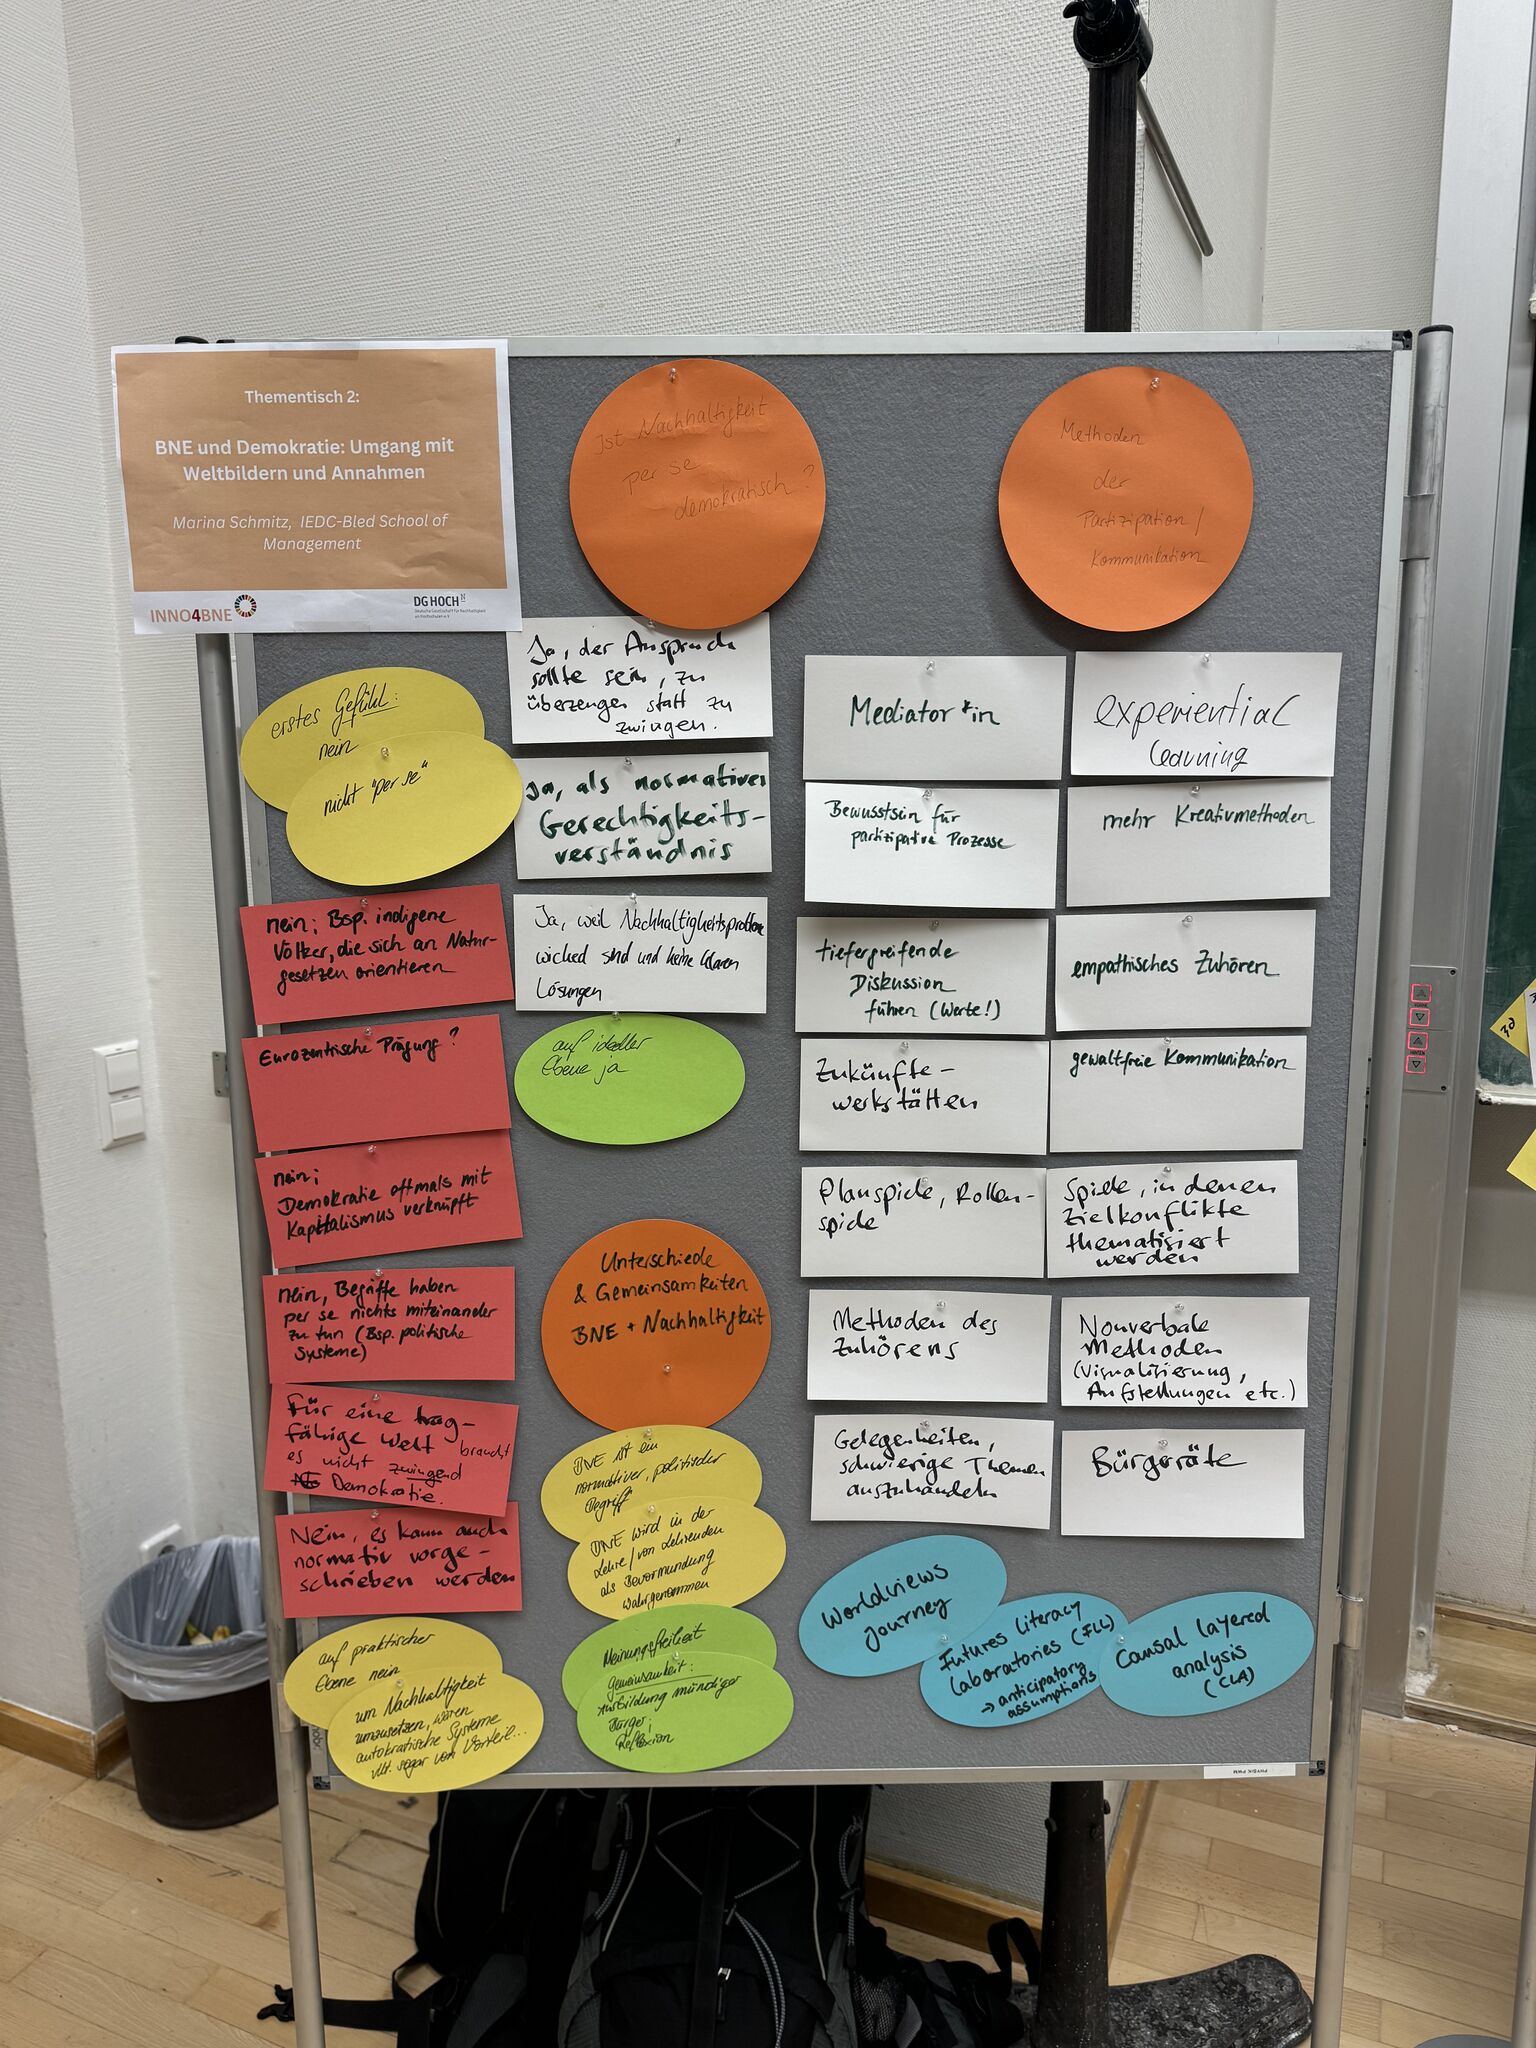 Thementisch 2:
BNE und Demokratie: Umgang mit
Weltbildern und Annahmen
Marina Schmitz, IEDC-Bled School of
Management
INNO4BNE
DG HOCH N
Deutsche Gesellschaft für Nachhaltigkeit
an Hochschulen e.V.
Ist Nachhaltigkeit
per se
demokratisch?
erstes Gefühl:
nein
nicht "per se"
nein; Bsp. indigene
Völker, die sich an Natur-
gesetzen orientieren
Eurozentrische Prägung?
nein;
Demokratie oftmals mit
Kapitalismus verknüpft
nein, Begriffe haben
per se nichts miteinander
zu tun (Bsp. politische
Systeme)
Für eine trag-
fähige Welt braucht
es nicht zwingend
Demokratie.
Nein, es kann auch
normativ vorge-
schrieben werden
auf praktischer
Ebene nein
um Nachhaltigkeit
umzusetzen, wären
autokratische Systeme
vllt. sogar von Vorteil...
Ja, der Anspruch
sollte sein, zu
überzeugen statt zu
zwingen.
Ja, als normatives
Gerechtigkeits-
verständnis
Ja, weil Nachhaltigkeitsprobleme
wicked sind und keine klaren
Lösungen
auf ideeller
Ebene ja
Unterschiede
& Gemeinsamkeiten
BNE + Nachhaltigkeit
BNE ist ein
normativer, politischer
Begriff
BNE wird in der
Lehre/von Lehrenden
als Bevormundung
wahrgenommen
Meinungsfreiheit
Gemeinsamkeit:
Ausbildung mündiger
Bürger;
Reflexion
Methoden
der
Partizipation/
Kommunikation
Mediator*in
experiential
learning
Bewusstsein für
partizipative Prozesse
mehr Kreativmethoden
tiefergreifende
Diskussion
führen (Werte!)
empathisches Zuhören
Zukünfte-
werkstätten
gewaltfreie Kommunikation
Planspiele, Rollen-
spiele
Spiele, in denen
Zielkonflikte
thematisiert
werden
Methoden des
Zuhörens
Nonverbale
Methoden
(Visualisierung,
Aufstellungen etc.)
Gelegenheiten,
schwierige Themen
auszuhandeln
Bürgerräte
Worldviews
Journey
Futures Literacy
Laboratories (FLL)
→ anticipatory
assumptions
Causal layered
analysis
(CLA)
PHYSIK PWM